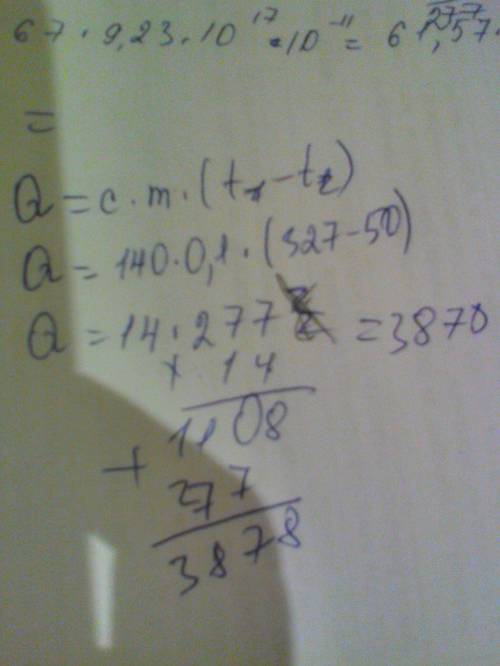 67 · 9,23 · 10¹⁷ · 10⁻¹¹ = 61,57 ·
=
Q = c · m · (t₁ - t₂)
Q = 140 · 0,1 · (327 - 50)
Q = 14 · 277 = 3870
× 14
1108
+
277
3878